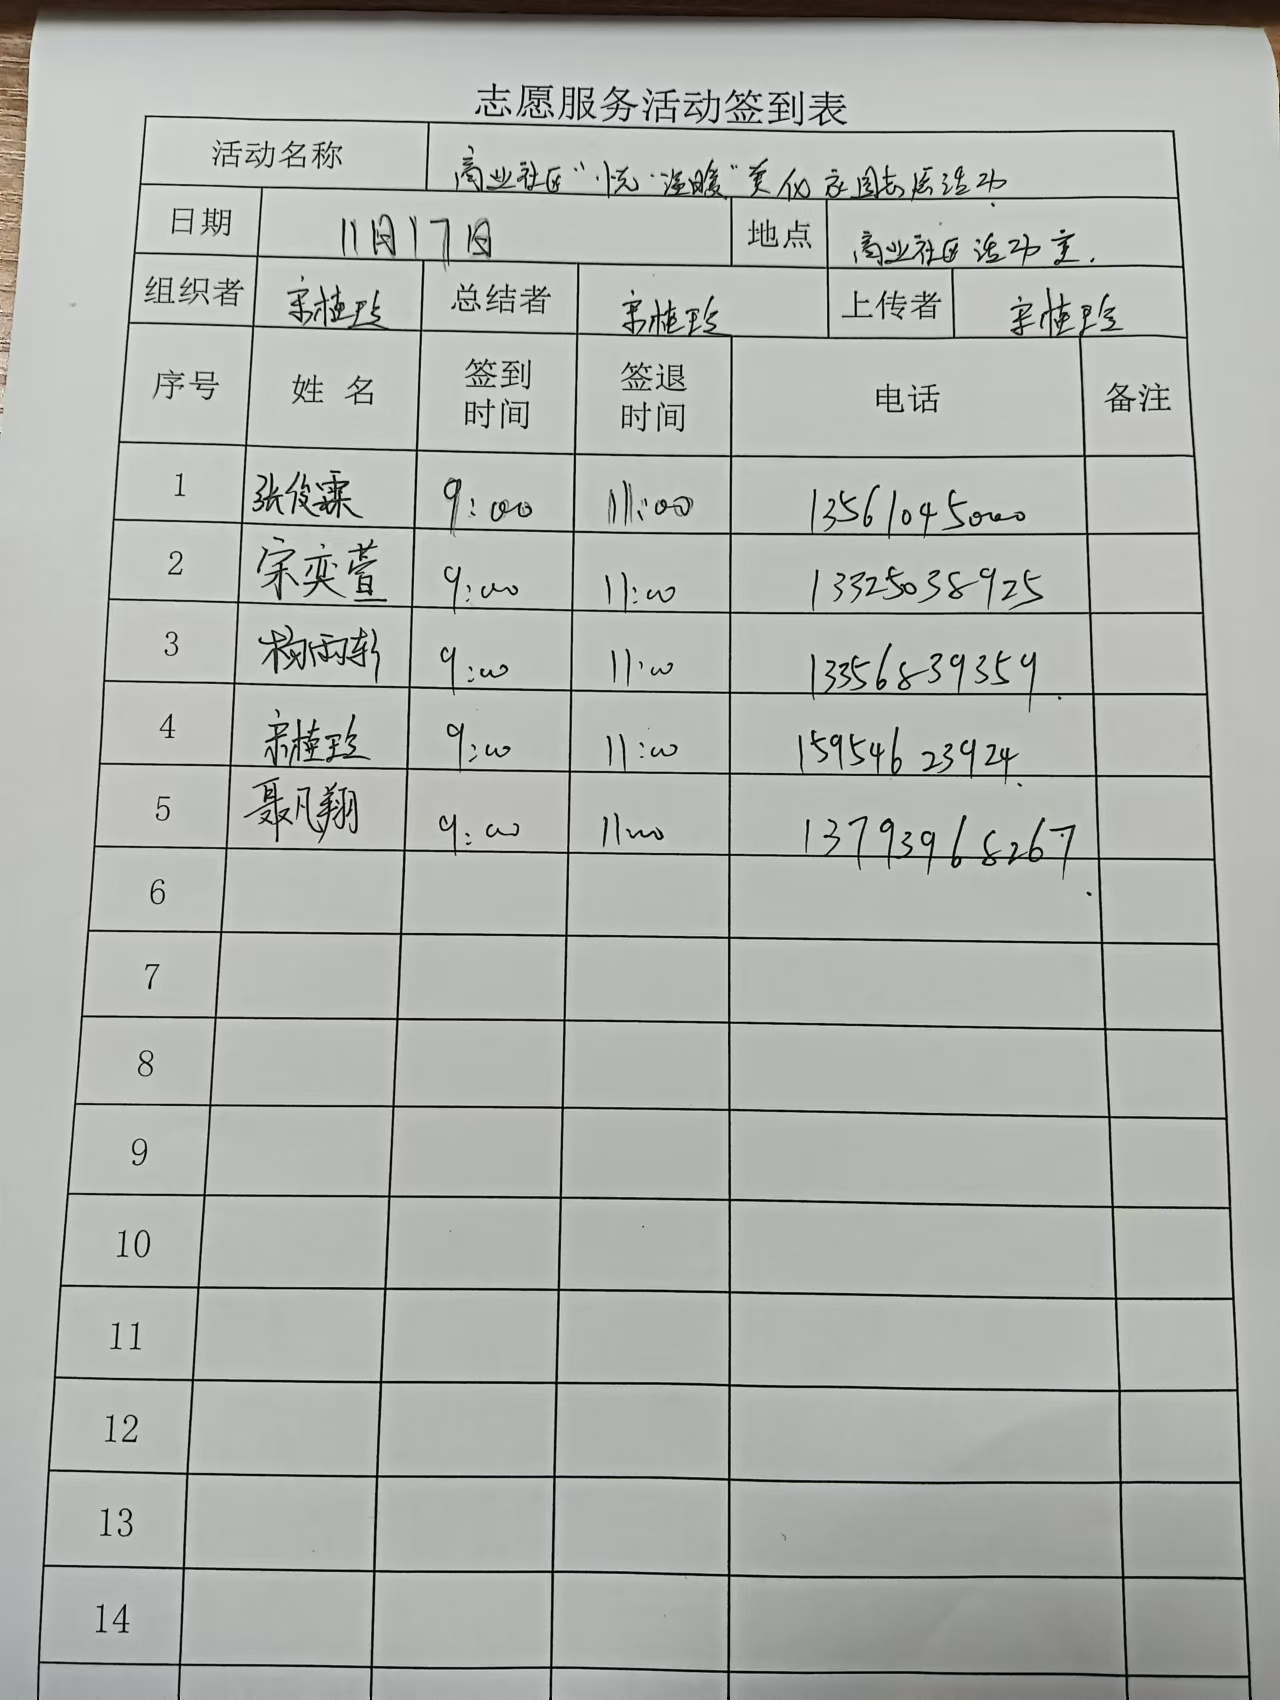 志愿服务活动签到表
活动名称 商业社区“悦·温暖”美化家园志愿活动
日期 11月17日 地点 商业社区活动室.
组织者 宋桂玲 总结者 宋桂玲 上传者 宋桂玲
序号 姓名 签到时间 签退时间 电话 备注
1 张俊霖 9:00 11:00 13561045000
2 宋奕萱 9:00 11:00 13325038925
3 杨雨轩 9:00 11:00 13356839359
4 宋桂玲 9:00 11:00 15954623924
5 聂凡翔 9:00 11:00 13793968267
6
7
8
9
10
11
12
13
14